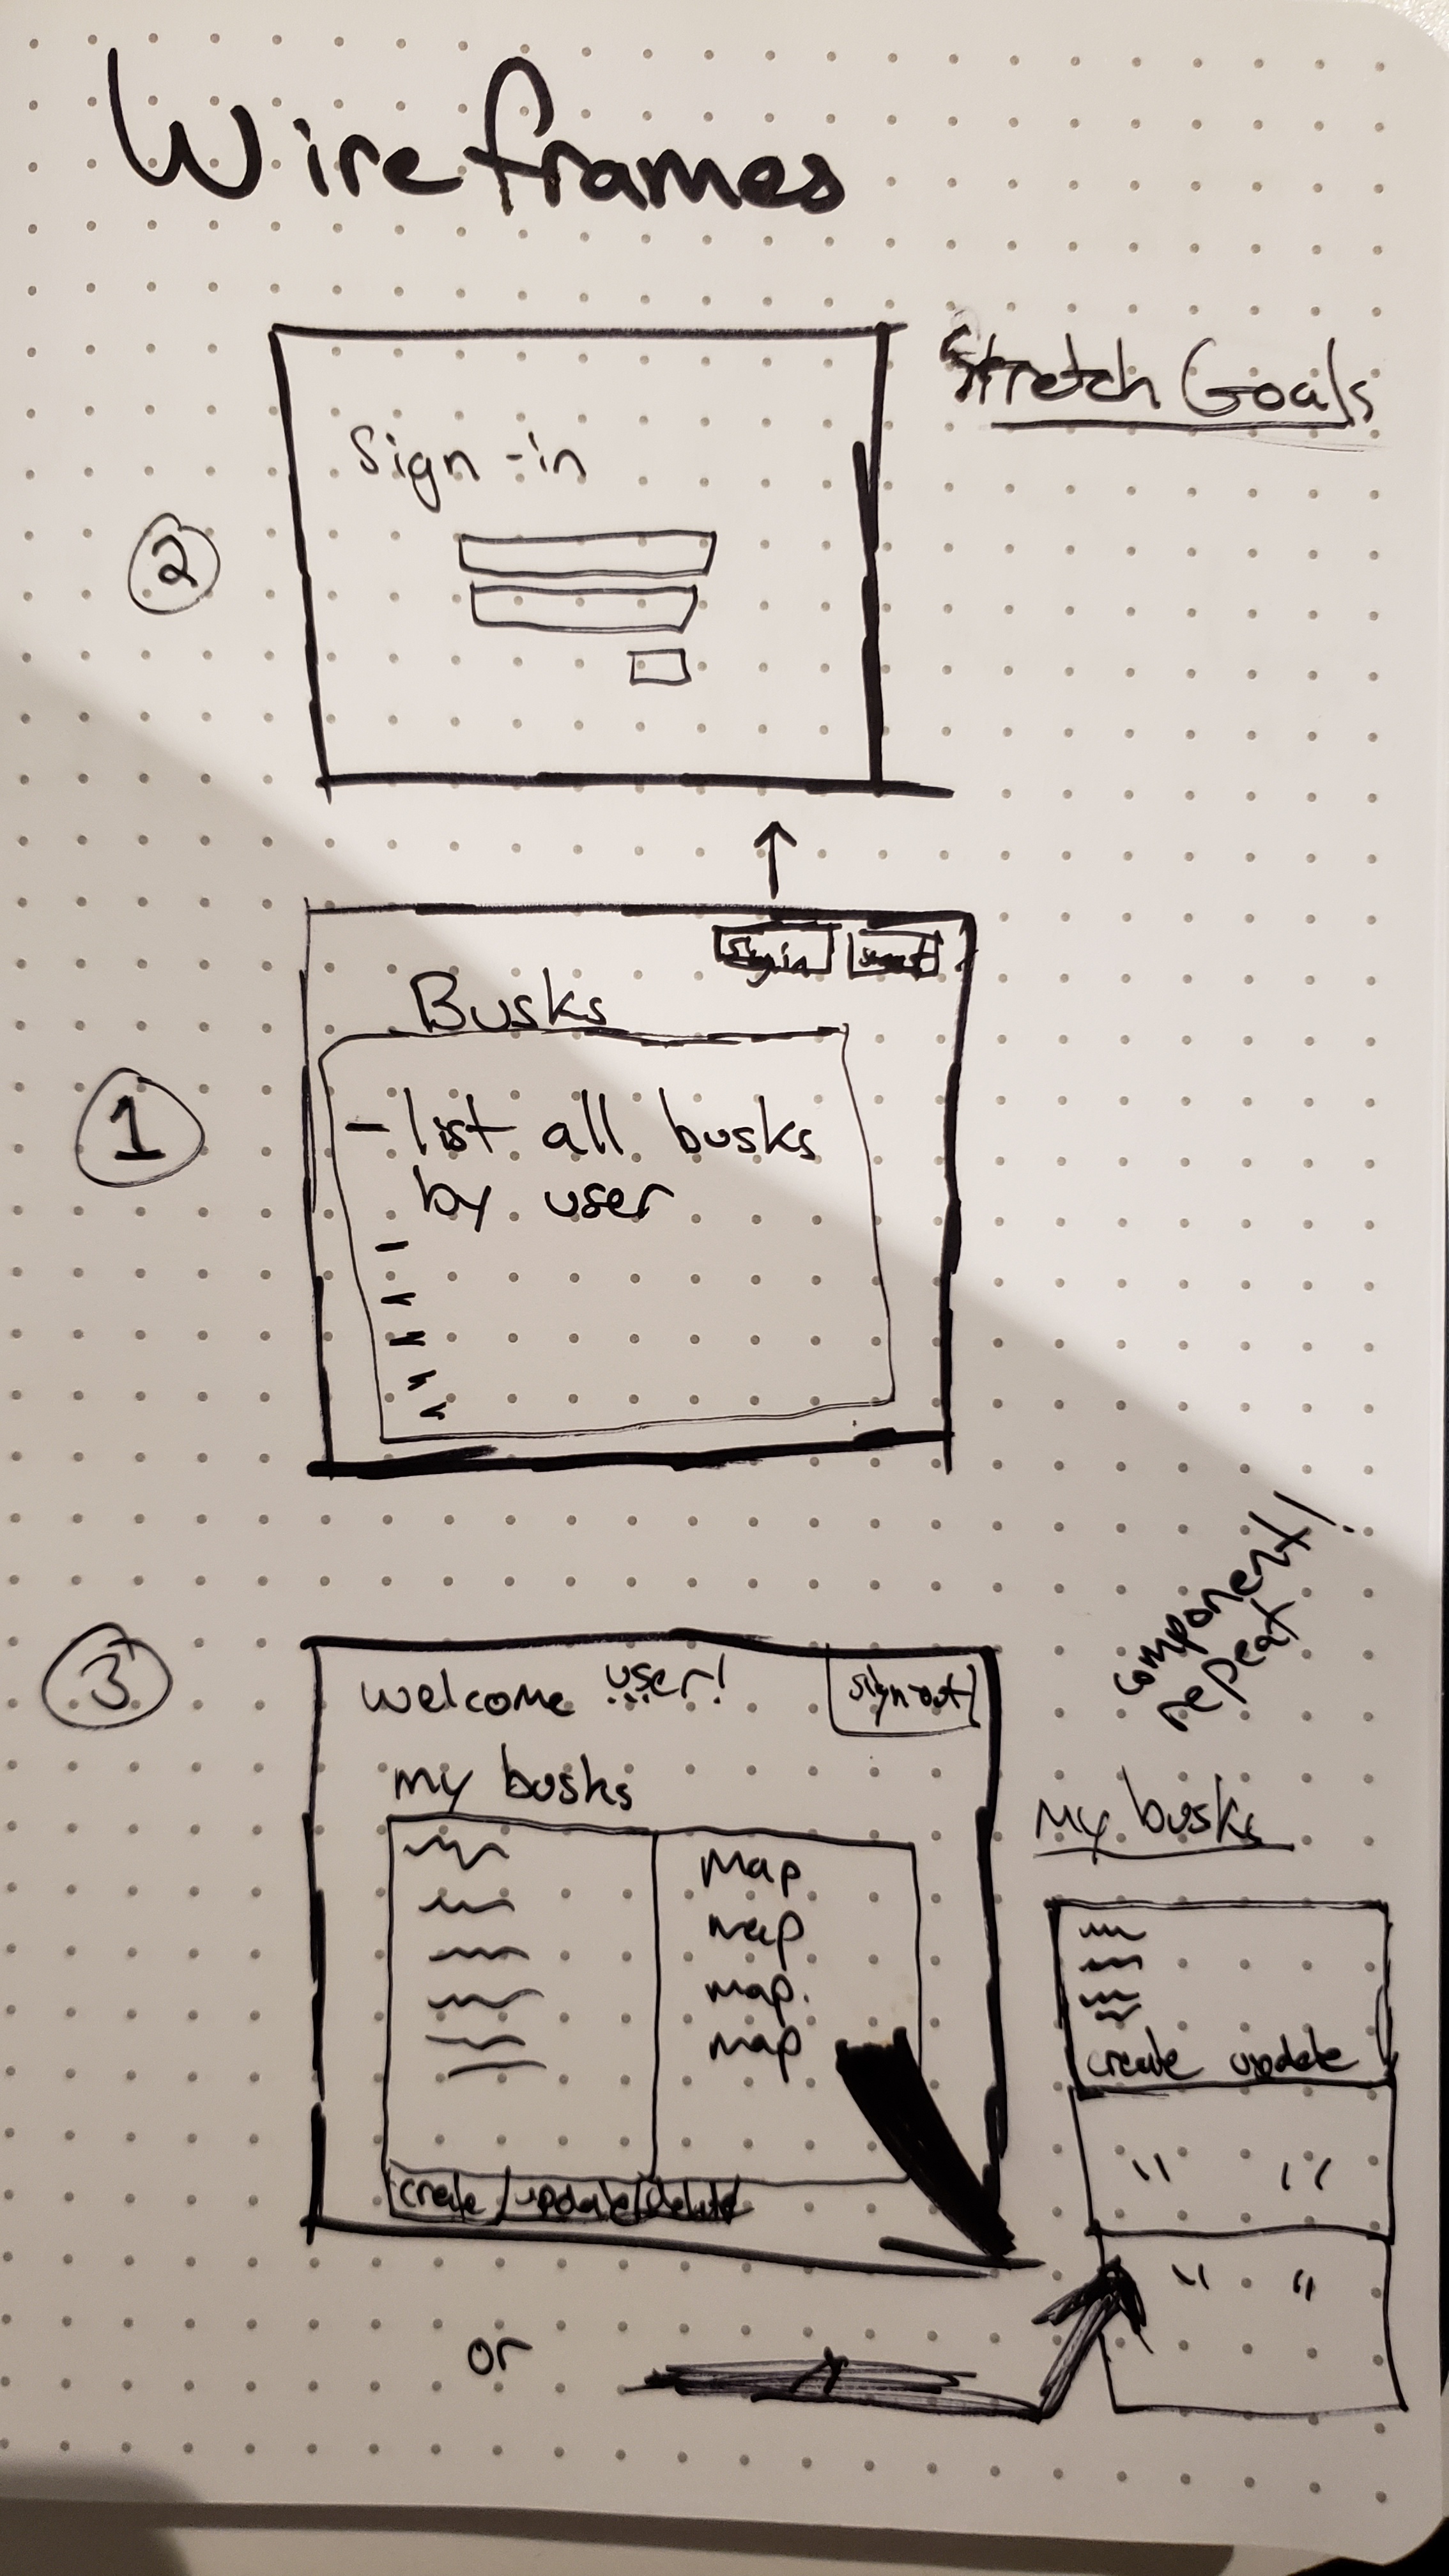 Wireframes
Stretch Goals
2
Sign-in
Sign in
Busks
1
- list all busks
by user
3
welcome user!
sign-out
my busks
map
map
map.
map
create update Delete
component!
repeat
My busks
create update
" "
" "
or